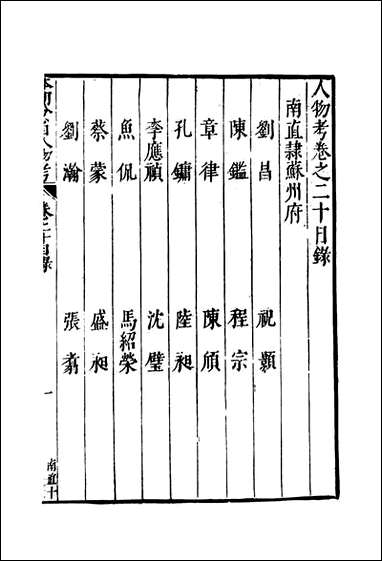 人物考卷之二十目錄
南直隸蘇州府
劉昌 祝顥
陳鑑 程宗
章律 陳頎
孔鏞 陸昶
李應禎 沈璧
魚侃 馬紹榮
蔡蒙 盛昶
劉瀚 張翥
本朝分省人物考 卷二十目錄 一 南直十